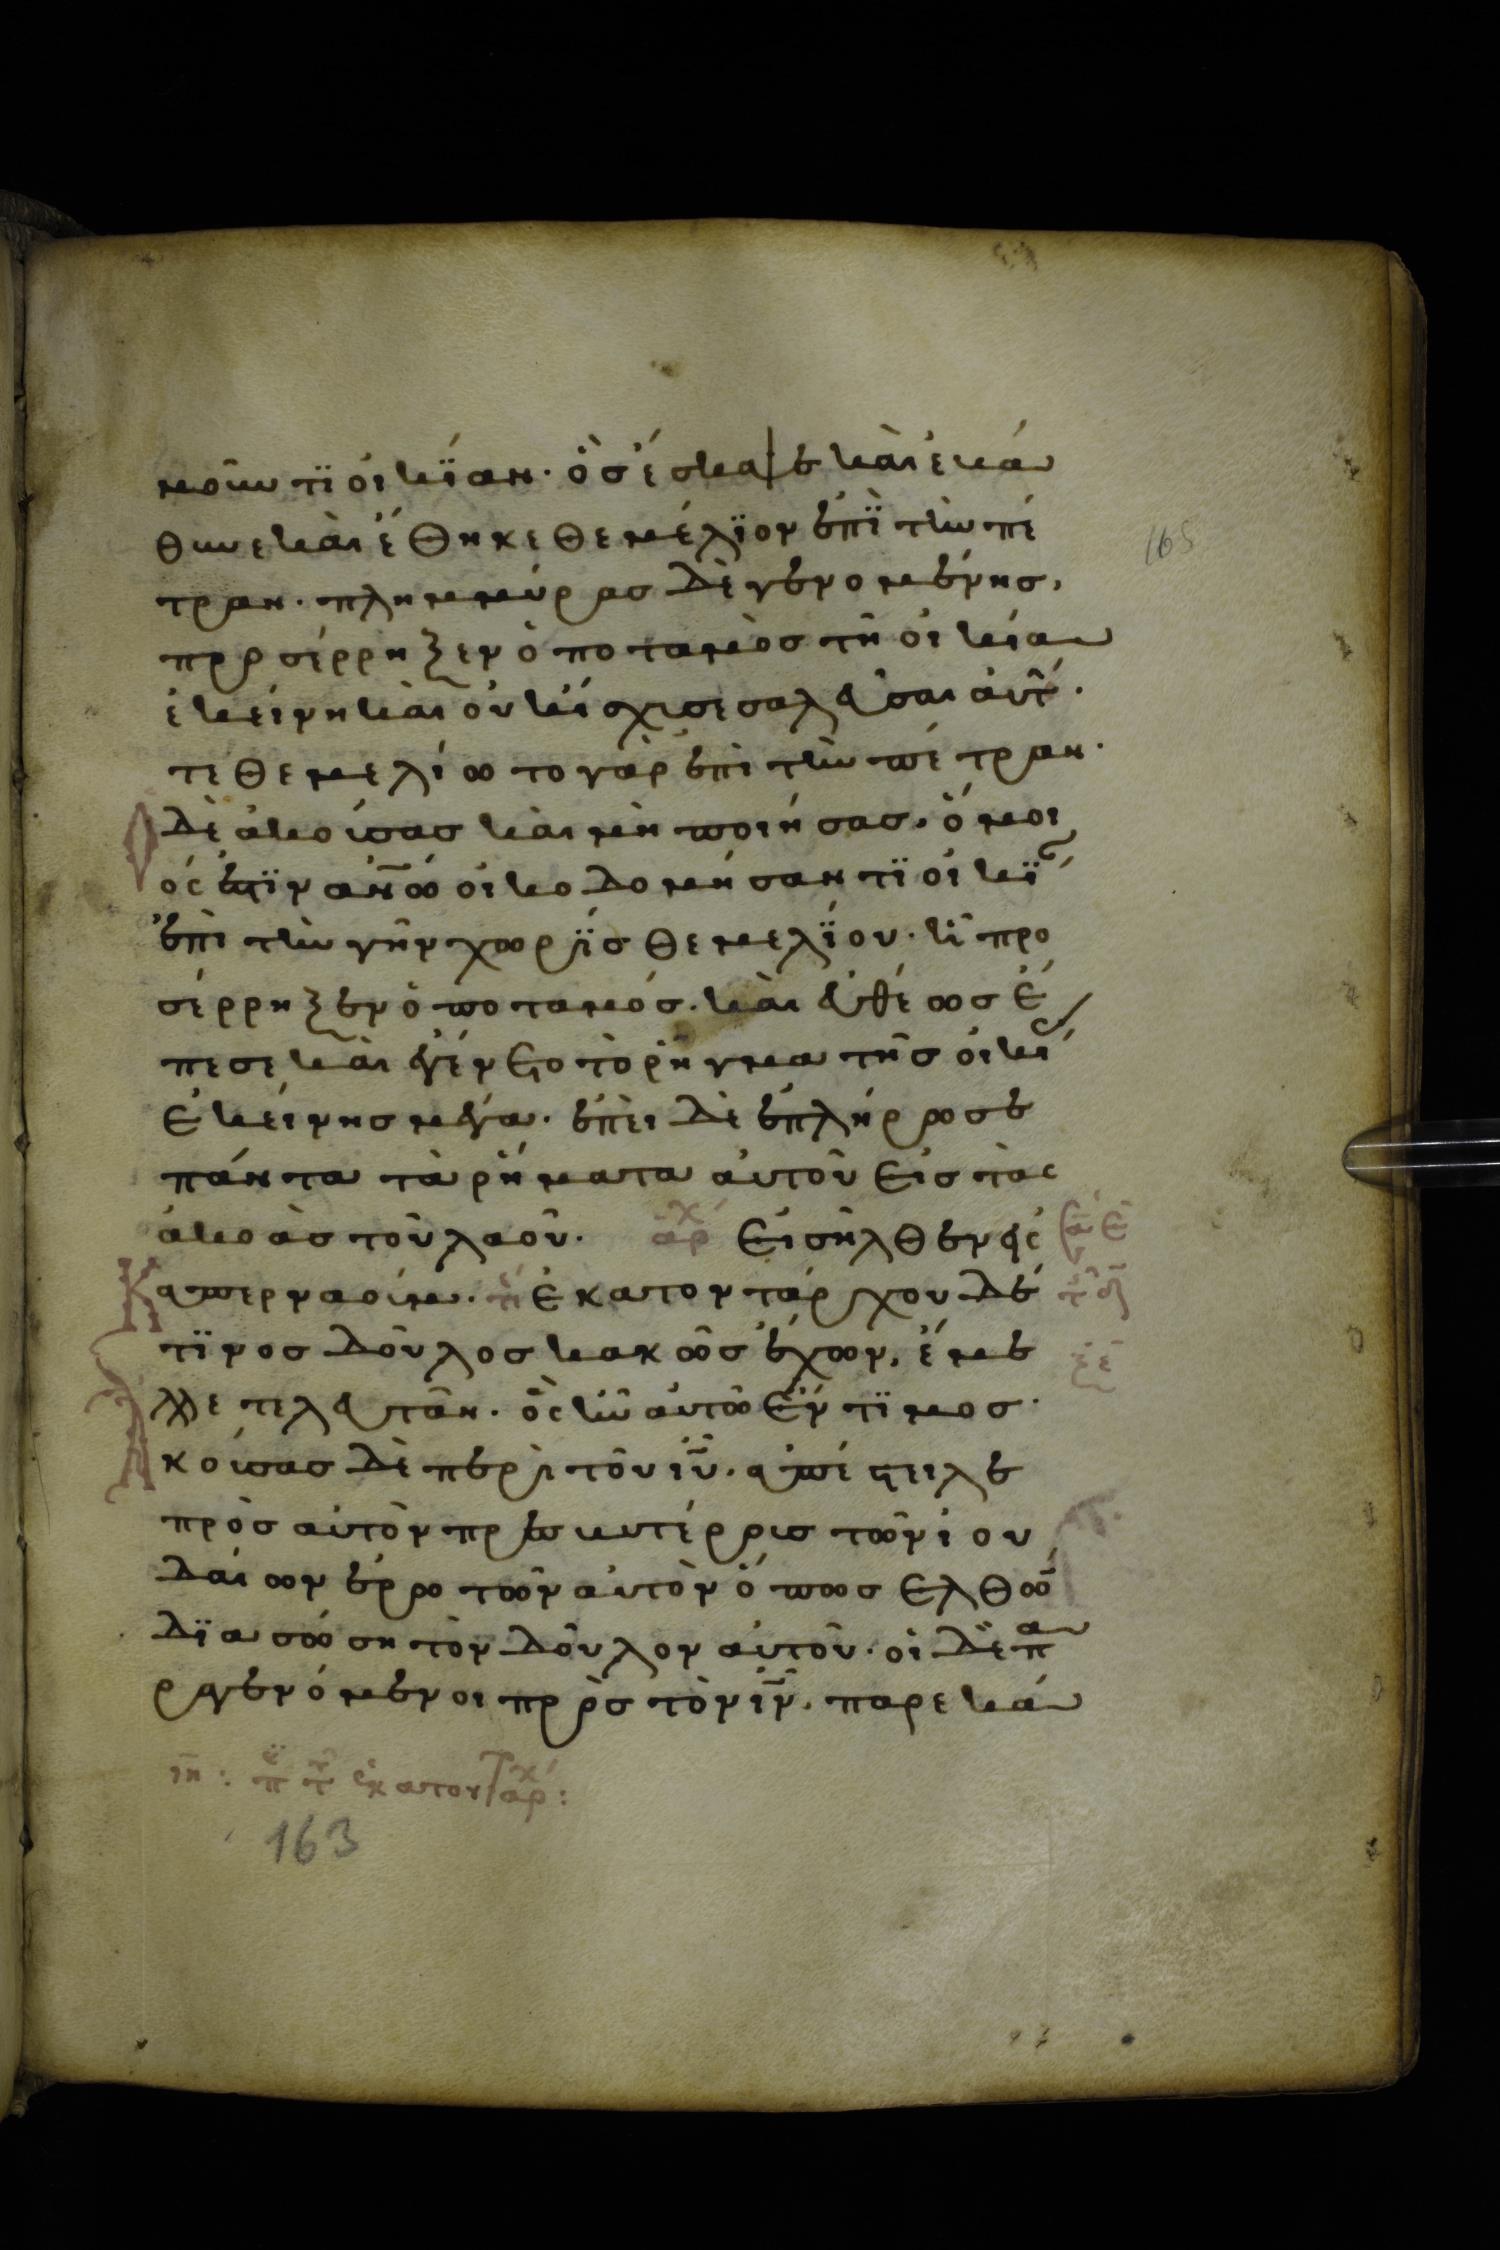 μοῦντι οἰκίαν· ὃς ἔσκαψε καὶ ἐβά
θυνε καὶ ἔθηκε θεμέλϊον ἐπῒ τὴν πέ
τραν· πλημμύρας δὲ γενομένης,
προσέρρηξεν ὁ ποταμὸς τῆ οἰκία
ἐκείνη καὶ οὐκ ἴσχυσε σαλεῦσαι αὐτ·
τεθεμελίωτο γὰρ ἐπὶ τὴν πέτραν·
Ὁ δὲ ἀκούσας καὶ μὴ ποιήσας, ὅμοι
ός ἐστϊν ἀνω οἰκοδομήσαντϊ οἰκϊ
ἐπὶ τὴν γῆν χωρῒς θεμελΐου· ἧ προ
σέρρηξεν ὁ ποταμός. καὶ εὐθέως ἔ
πεσε καὶ ἐγένετο τὸ ρῆγμα τῆς οἰκί
ἐκείνης μέγα· ἐπεὶ δὲ ἐπλήρωσε
πάντα τὰ ρήματα αὐτοῦ εἰς τὰς
ἀκοὰς τοῦ λαοῦ· ἀρχ Εἰσῆλθεν εἰς
Καπερναούμ· Ἑκατοντάρχου δέ
τϊνος δοῦλος κακῶς ἔχων, ἔμε
λλε τελευτᾶν· ὃς ἦν αὐτῶ ἔντϊμος·
Ἀκούσας δὲ περὶ τοῦ ιυ· ἀπέστειλε
πρὸς αὐτὸν πρεσβυτέρους τῶν ἰου
δαίων ἐρωτῶν αὐτὸν ὅπως ἐλθὼ
δϊασώση τὸν δοῦλον αὐτοῦ· οἱ δὲ πα
ραγενόμενοι πρὸς τὸν ιν, παρεκά
ιη: π τ ἑκατοντάρχ:
163
165